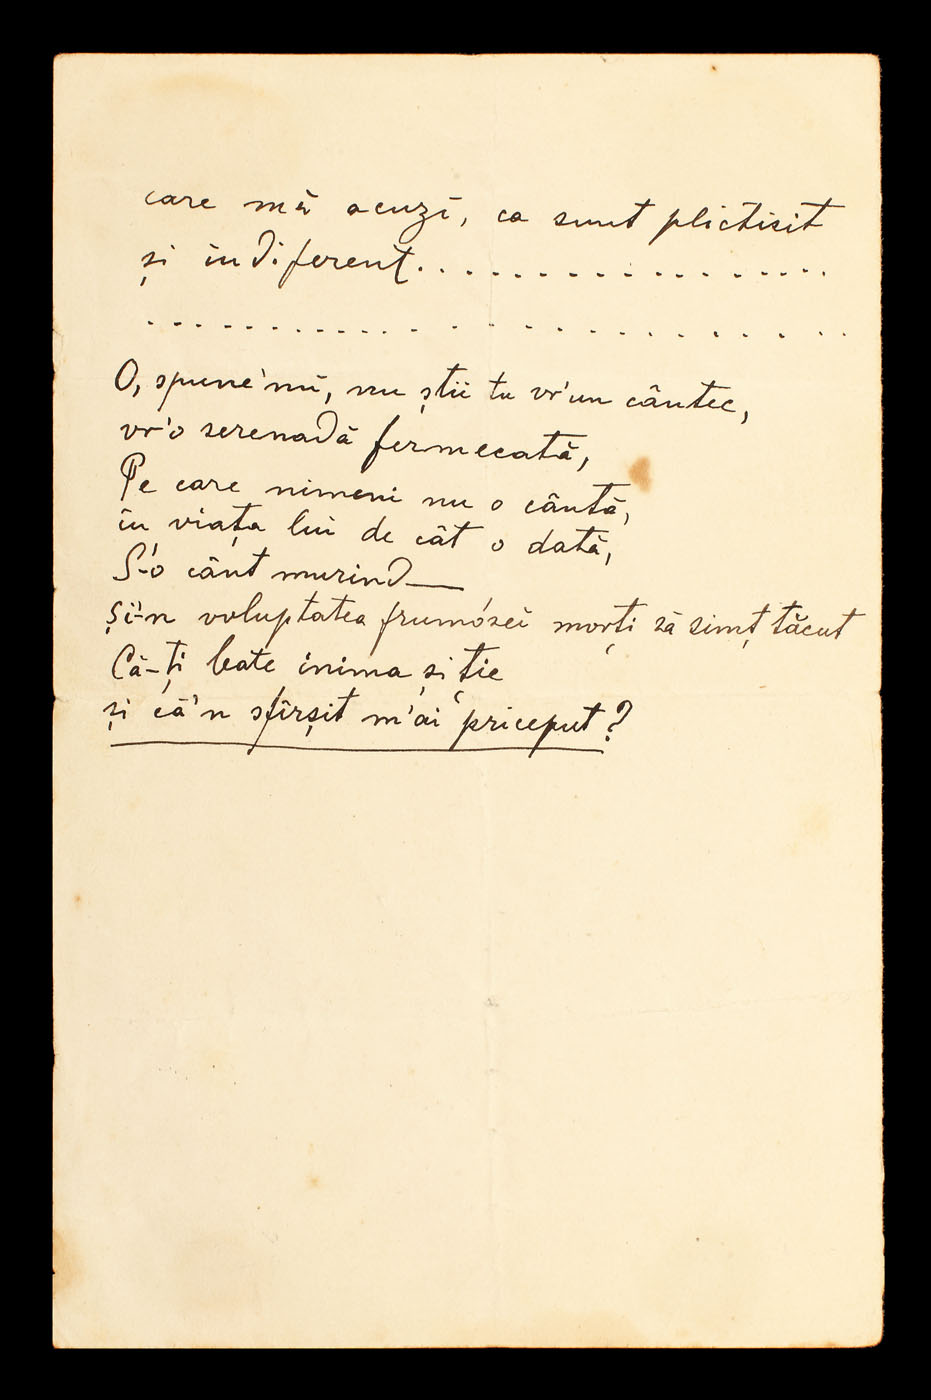 care mă acuzĭ, ca sunt plictisit
și indiferent..................
..............................
O, spune'mĭ, nu știi tu vr'un cântec,
vr'o serenadă fermecată,
Pe care nimeni nu o cântă,
în viața lui de cât o dată,
S-'o cânt murind—
Și-'n voluptatea frumósei morțĭ să simț tăcut
Că-ți bate inima și ție
și că'n sfîrșit m'ai priceput?